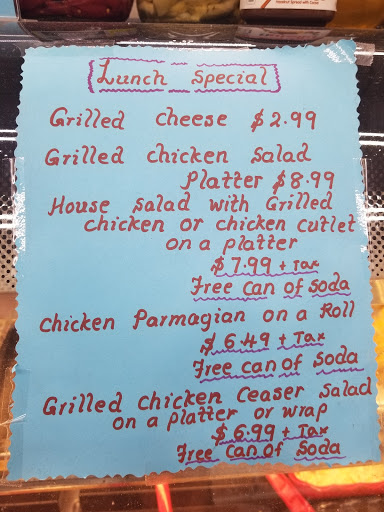 Lunch Special
Grilled cheese $2.99
Grilled chicken Salad
Platter $8.99
House Salad with Grilled
chicken or chicken cutlet
on a platter
$7.99 + Tax
Free can of soda
Chicken Parmagian on a Roll
$6.49 + Tax
Free can of soda
Grilled chicken Ceaser Salad
on a platter or wrap
$6.99 + Tax
Free can of soda